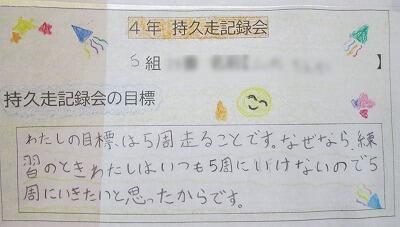 4年 持久走記録会
5組
】
持久走記録会の目標
わたしの目標は5周走ることです。なぜなら、練
習のときわたしはいつも5周にいけないので5
周にいきたいと思ったからです。